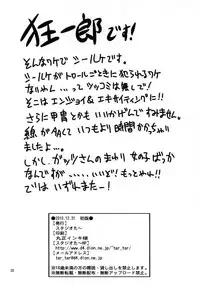 狂一郎です!
そんなワケでシールケです。
シールケがトロールごときに犯られるワケ
ないじゃん…ってツッコミは無しで!
そこはエンジョイ&エキサイティングに!!
さらに甲冑とかもハブいてすみません。
線が多くていつもより時間かかっちゃい
ましたよ…
しかし、ガッツさんのまわり女の子ばっか
なんでかいてみたいっスね!
でわ、いずれまたー!
■2010.12.31 初版■
【発行】
スタジオたー
【印刷】
丸正インキ様
【スタジオたーHP】
http://www.d4.dion.ne.jp/~tar_tar/
【メールアドレス】
tar_tar@d4.dion.ne.jp
※18歳未満の方の閲覧・貸し出しを禁止します
※無断転載・無断複写・無断アップロード禁止